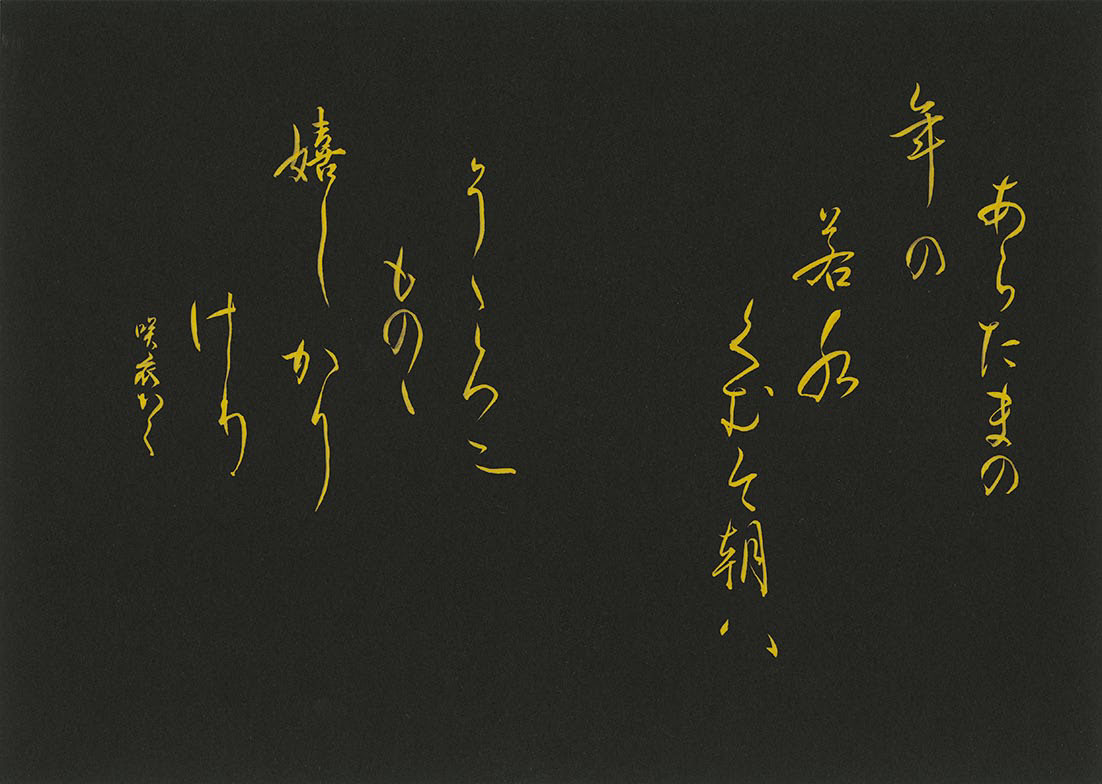 あらたまの
年の
若水
くむ今朝ハ
そゝろに
ものゝ
嬉しかり
けり
咲衣かく